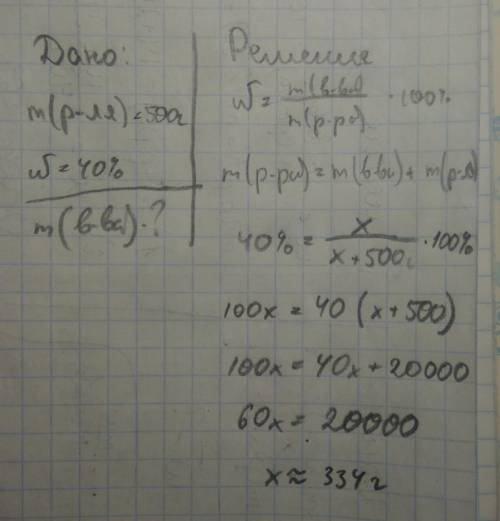 Дано:
m(р-ля)=500г
ω = 40%
m(в-ва)-?
Решения
ω = m(в-ва) / m(р-ра) · 100%
m(р-ра) = m(в-ва) + m(р-ля)
40% = x / x + 500г · 100%
100x = 40 (x + 500)
100x = 40x + 20000
60x = 20000
x ≈ 334 г